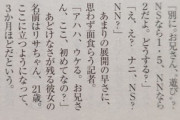 別に」「お兄さん、〝遊び〟？
NSなら1・5、NNなら
2だよ。どうする？」
「え、え？　ナニ、NS？
NN？」
あまりの展開の早さに、
思わず面食らう記者。
「アハハ、ウケる。お兄さ
ん、ここ、初めてなの？」
あどけなさが残る彼女の
名前はリサちゃん、21歳。
ここに立つようになって、
3か月ほどなという。